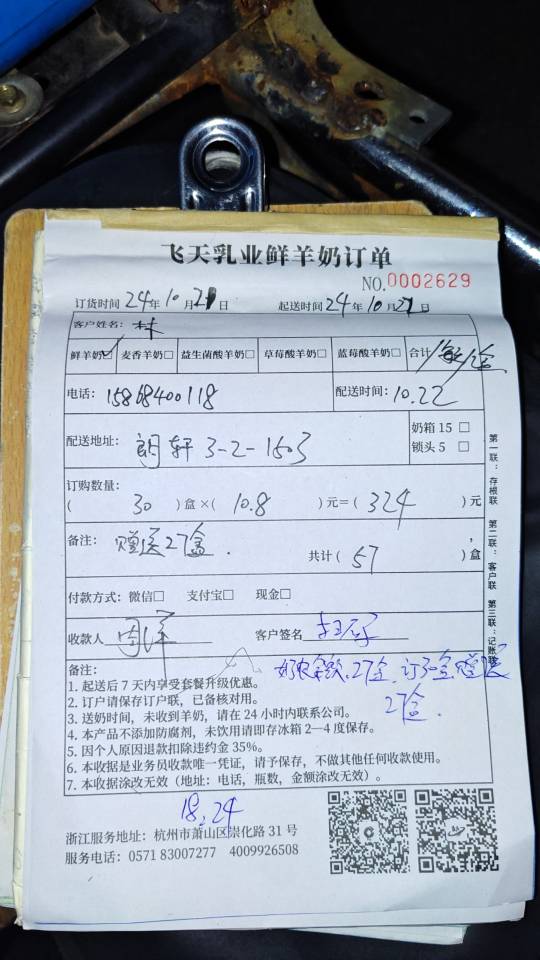 飞天乳业鲜羊奶订单
NO.0002629
订货时间 24年10月21日 起送时间 24年10月21日
客户姓名：林
鲜羊奶☑ 麦香羊奶□ 益生菌酸羊奶□ 草莓酸羊奶□ 蓝莓酸羊奶□ 合计
电话：15868400118 配送时间：10.22
配送地址：朗轩 3-2-1503 奶箱 15 □
锁头 5 □
订购数量：
( 30 ) 盒 × ( 10.8 ) 元 = ( 324 ) 元
备注：赠送27盒. 共计 ( 57 ) 盒
付款方式：微信□ 支付宝□ 现金□
收款人 客户签名
备注：
27盒. 订30盒赠送
27盒.
1. 起送后 7 天内享受套餐升级优惠。
2. 订户请保存订户联，已备核对用。
3. 送奶时间，未收到羊奶，请在 24 小时内联系公司。
4. 本产品不添加防腐剂，未饮用请即存冰箱 2—4 度保存。
5. 因个人原因退款扣除违约金 35%。
6. 本收据是业务员收款唯一凭证，请予保存，不做其他任何收款使用。
7. 本收据涂改无效（地址：电话，瓶数，金额涂改无效）。
18:24
浙江服务地址：杭州市萧山区崇化路 31 号
服务电话：0571 83007277 4009926508
第一联：存根联 第二联：客户联 第三联：记账联